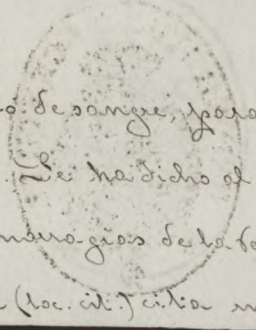 o de sangre, para
Se ha dicho al
morragias de la
(loc. cit.) cita